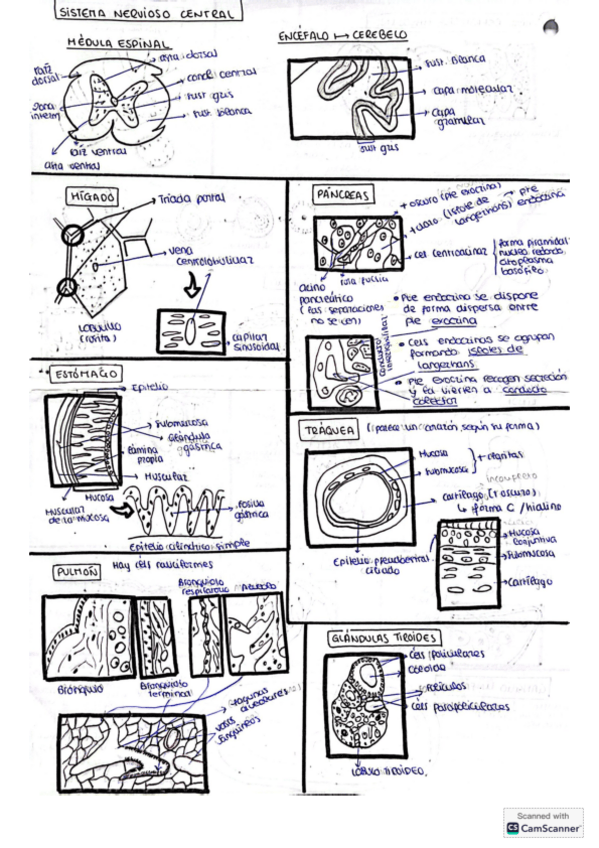 SISTEMA NERVIOSO CENTRAL
MÉDULA ESPINAL
asta dorsal
raíz
dorsal
canal central
sust gris
sust blanca
raíz ventral
asta ventral
ENCÉFALO ↦ CEREBELO
sust. blanca
capa molecular
capa
granular
sust gris
HÍGADO
Tríada portal
vena
centrolobulillar
LOBULILLO
capilar
sinusoidal
PÁNCREAS
+ oscuro (pte exocrina)
+ claro (islote de → pte
langerhans) endocrina
cel centroacinar
forma piramidal
nucleo redondo
citoplasma
basófilo
acino
pancreático
(las separaciones
no se ven)
• Pte endocrina se dispone
de forma dispersa entre
pte exocrina
• Cels endocrinas se agrupan
formando islotes de
langerhans
• Pte exocrina recogen secreción
y la vierten a conducto
colector
ESTÓMAGO
Epitelio
submucosa
Glándula
gástrica
Lámina
propia
Muscular
Mucosa
Muscular
de la mucosa
fosilla
gástrica
Epitelio cilíndrico simple
TRÁQUEA (parece un corazón según su forma)
Mucosa
submucosa
incompleto
cartílago (+ oscuro)
↳ forma C / hialino
Epitelio pseudoestrat
ciliado
Mucosa
conjuntiva
Submucosa
Cartílago
PULMÓN
Hay cels caliciformes
Bronquiolo
respiratorio
Alveolo
Bronquio
Bronquiolo
terminal
alveolares
vasos
sanguíneos
GLÁNDULAS TIROIDES
cels foliculares
coloide
Folículos
cels parafoliculares
LOBULO TIROIDEO
Scanned with
CS CamScanner